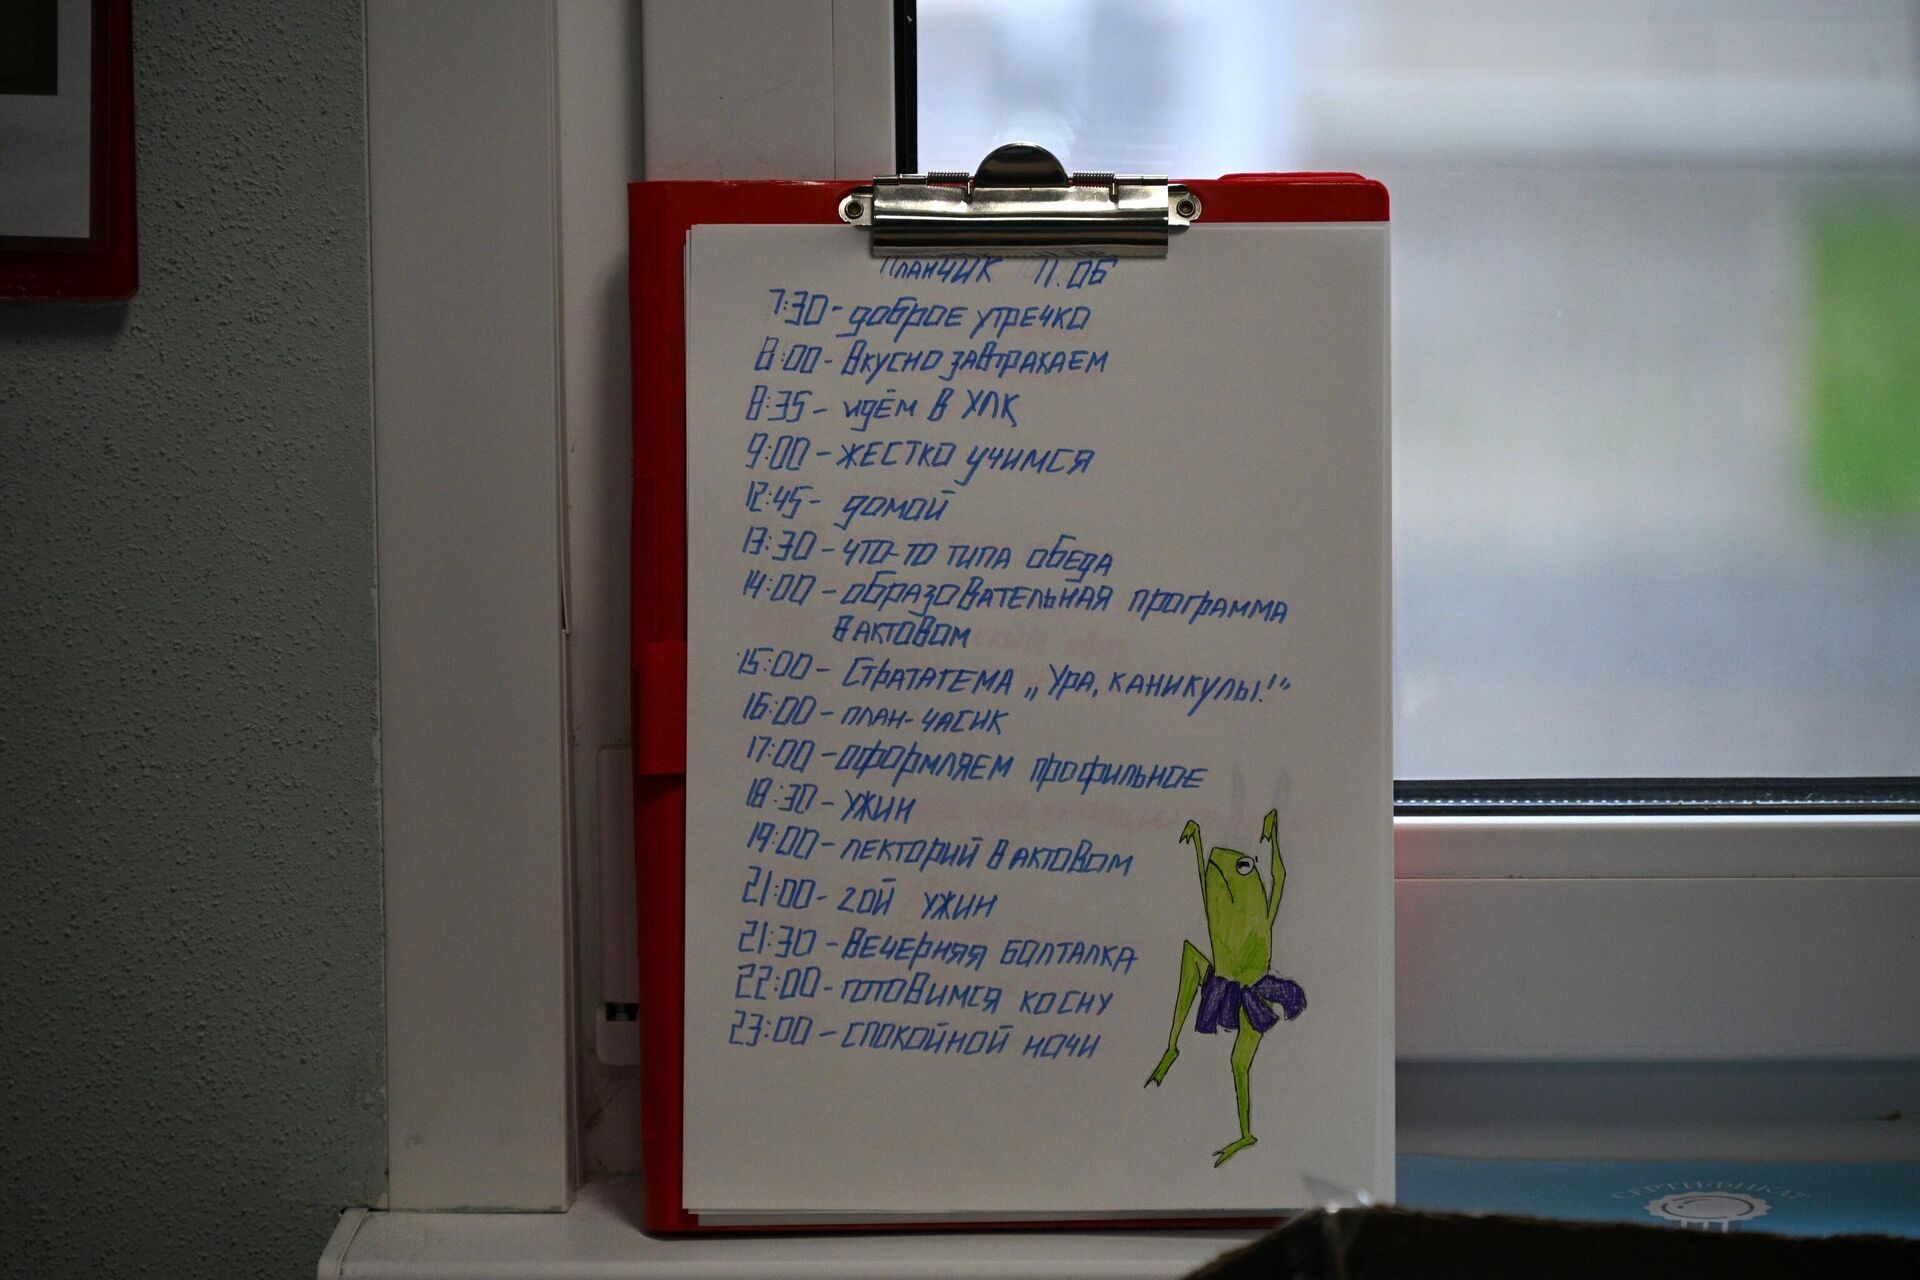 Планчик 11.06
7:30 - доброе утречко
8:00 - вкусно завтракаем
8:35 - идём в УЛК
9:00 - жестко учимся
12:45 - домой
13:30 - что-то типа обеда
14:00 - образовательная программа
в актовом
15:00 - Стратагема „Ура, каникулы!“
16:00 - план-часик
17:00 - оформляем профильное
18:30 - ужин
19:00 - лекторий в актовом
21:00 - 2ой ужин
21:30 - вечерняя болталка
22:00 - готовимся ко сну
23:00 - спокойной ночи
СЕРТИФИКАТ